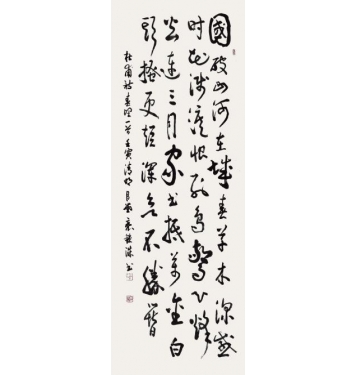 國破山河在城春草木深感
時花濺淚恨別鳥驚心烽
火連三月家書抵萬金白
頭搔更短渾欲不勝簪
杜甫詩春望一首壬寅清明月書